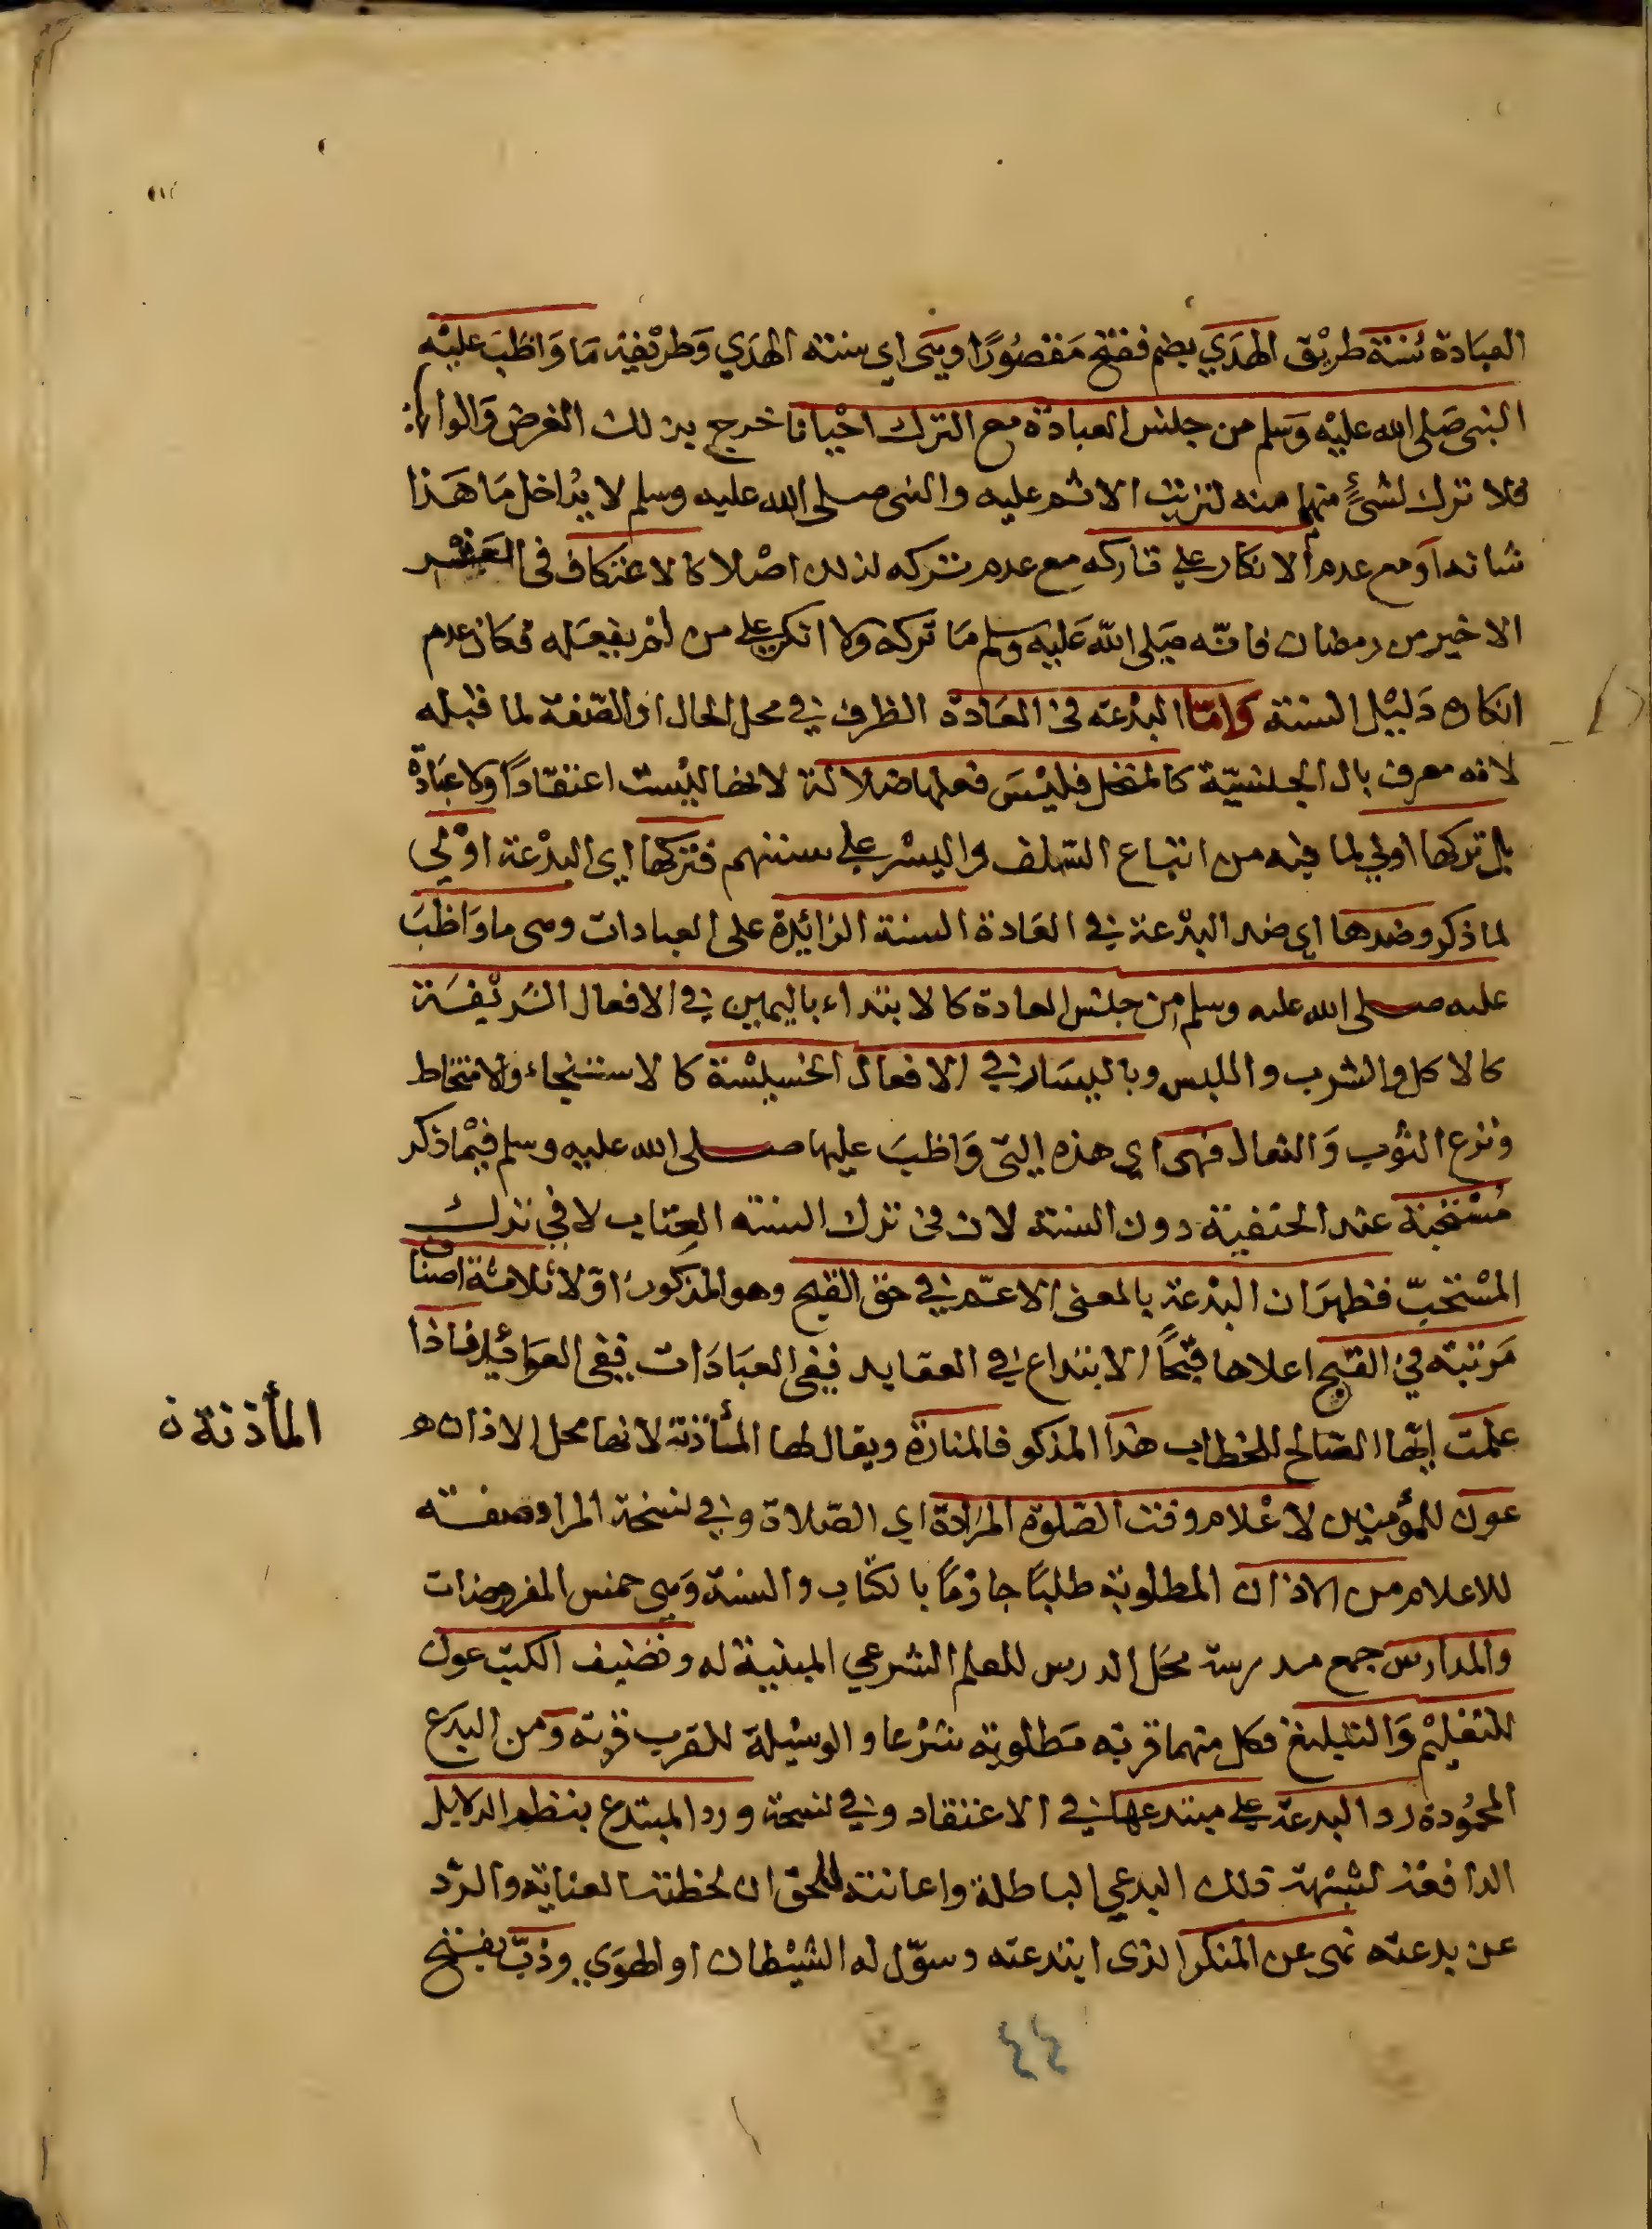 العبَادة سُنَة طريْق الهدَي بضم ففتح مَقصُورًا وسَى اي سنته الهدَي وَطريْقيه مَا وَاظبَ عليْه
النبى صَلى الله عليْه وَسَلم من جلس العبادَة مع الترك احْيانا خرج بذلك الفرض وَالوا
فلا ترك لشئٍ منهما منه لترتب الاثم عليه والنبى صلى الله عليه وسلم لا يُداخل مَا هَذا
شانه اوَمع عدم الانكار على تاركه مع عدم تركه لذلك اصْلا كالاعتكاف فى العَشر
الاخير من رمضان فانّه صَلى الله عَليه وسلم مَا تركه ولا انكر على من لم يفعَله فكان عدم
انكاره دَليْل السنة وَامّا البدْعته فى العَادة الظرف في محل الحال اوالصّفة لما قبله
لانه معرف بال الجلسيّة كالمنخل فليْسَ فعلها ضلالة لانها ليْست اعتقادًا ولا عبَادة
بل تركها اولي لما فيه من اتباع السّلف واليسْر على سننهم فتركها اى البدْعة اوْلي
لما ذكر وضدها اي ضد البدْعة في العَادة السنة الزائدة على العبادات وهى ما وَاظبَ
عليه صلى الله عليه وسلم من جلس العادة كالابتداء باليمين في الافعال الشريْفَة
كالاكل والشرب واللبس وباليسَار في الافعال الخسيسْة كالاستنجاء والامتخاط
ونزع الثوْب وَالنعال فهى اي هذه التى وَاظبَ عليها صلى الله عليه وسلم فيْما ذكر
مُسْتحبة عند الحنفية دون السنة لان فى ترك السنة العِتاب لا في ترك
المسْتحبّ فظهرَ ان البدْعة بالمعنى الاعم في حق القبح وهو المذكورُ اوّلا ثلاثة اصناف
مَرتبته في القبح اعلاها قبْحًا الابتداع في العقايد ففى العبَادَات ففى العوَائد فاذا
علمت ايّها الصّالح للخطاب هذا المذكو فالمنارة ويقال لها المأذنة لانها محل الاذان
المأذنة ن
عون للمؤمنين لاعْلام وقت الصّلوة المرَادة اي الصّلاة وفي نسخة المراد صفته
للاعلام من الاذان المطلوبة طلبًا جازمًا بالكتاب والسنة وَهى خمس المفروضات
والمدارس جمع مدرسة محَل الدرس للعلم الشرعي المبنية له وتصنيف الكتب عون
للتعليْم وَالتبليغ فكل منهما قربة مَطلوبة شرْعا والوسيْلة للقرب قربة وَمن البدَع
المحمُودة رد البدعة على مبتدعها في الاعتقاد وفي نسخة ورد المبتدع بنظم الدلايل
الدافعة لشبْهة تلك البدعى الباطلة واعانته للحق ان لحظته العناية والرّد
عن بدعته نهى عن المنكر الذى ابتدعته وسوّل له الشيْطان او الهوَي وذبّ بفتح
٤٤